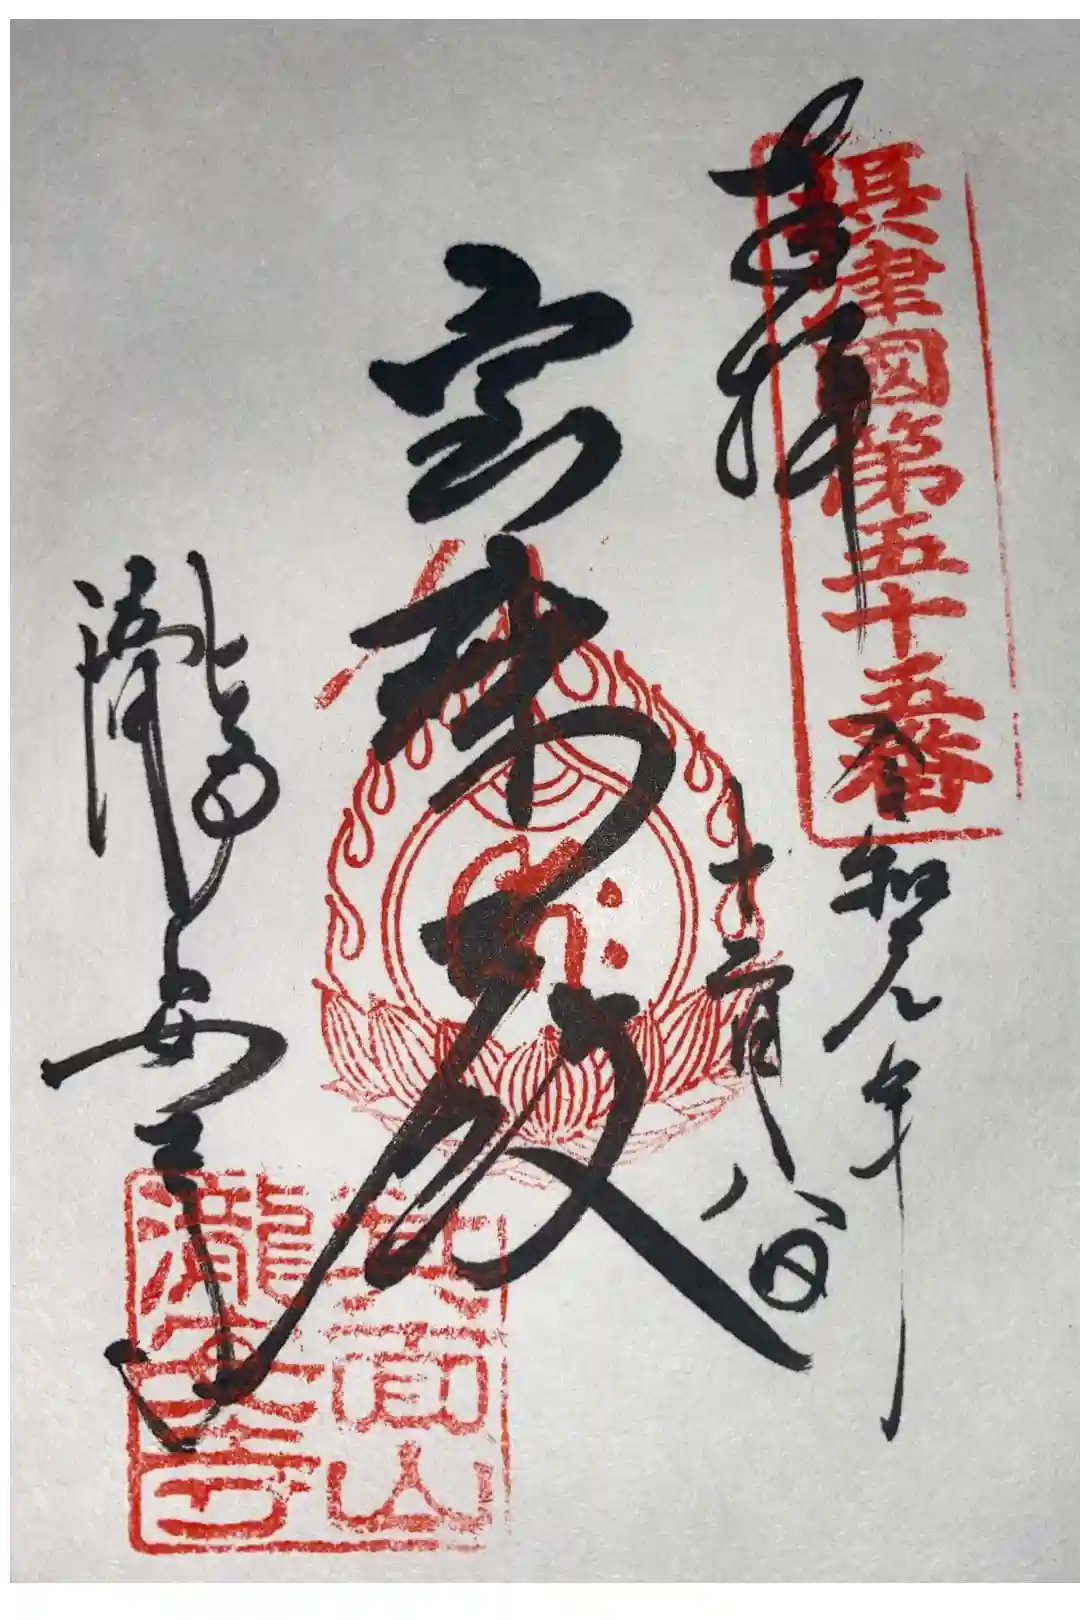 奉拝
摂津国第五十五番
令和元年
十二月八日
宝珠殿
瀧安寺
箕面山
瀧安寺